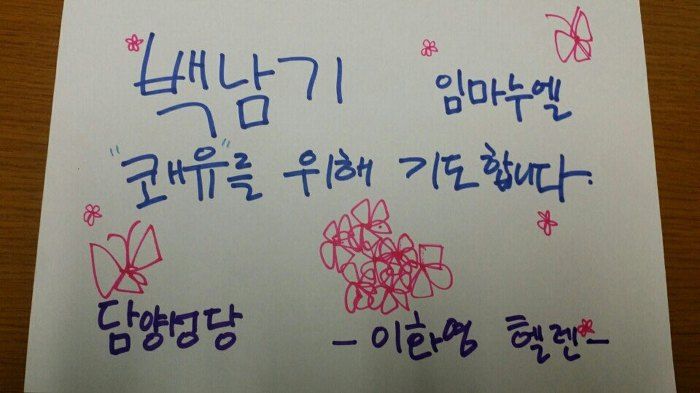 백남기 임마누엘
"쾌유"를 위해 기도합니다.
담양성당 - 이환영 헬렌 -